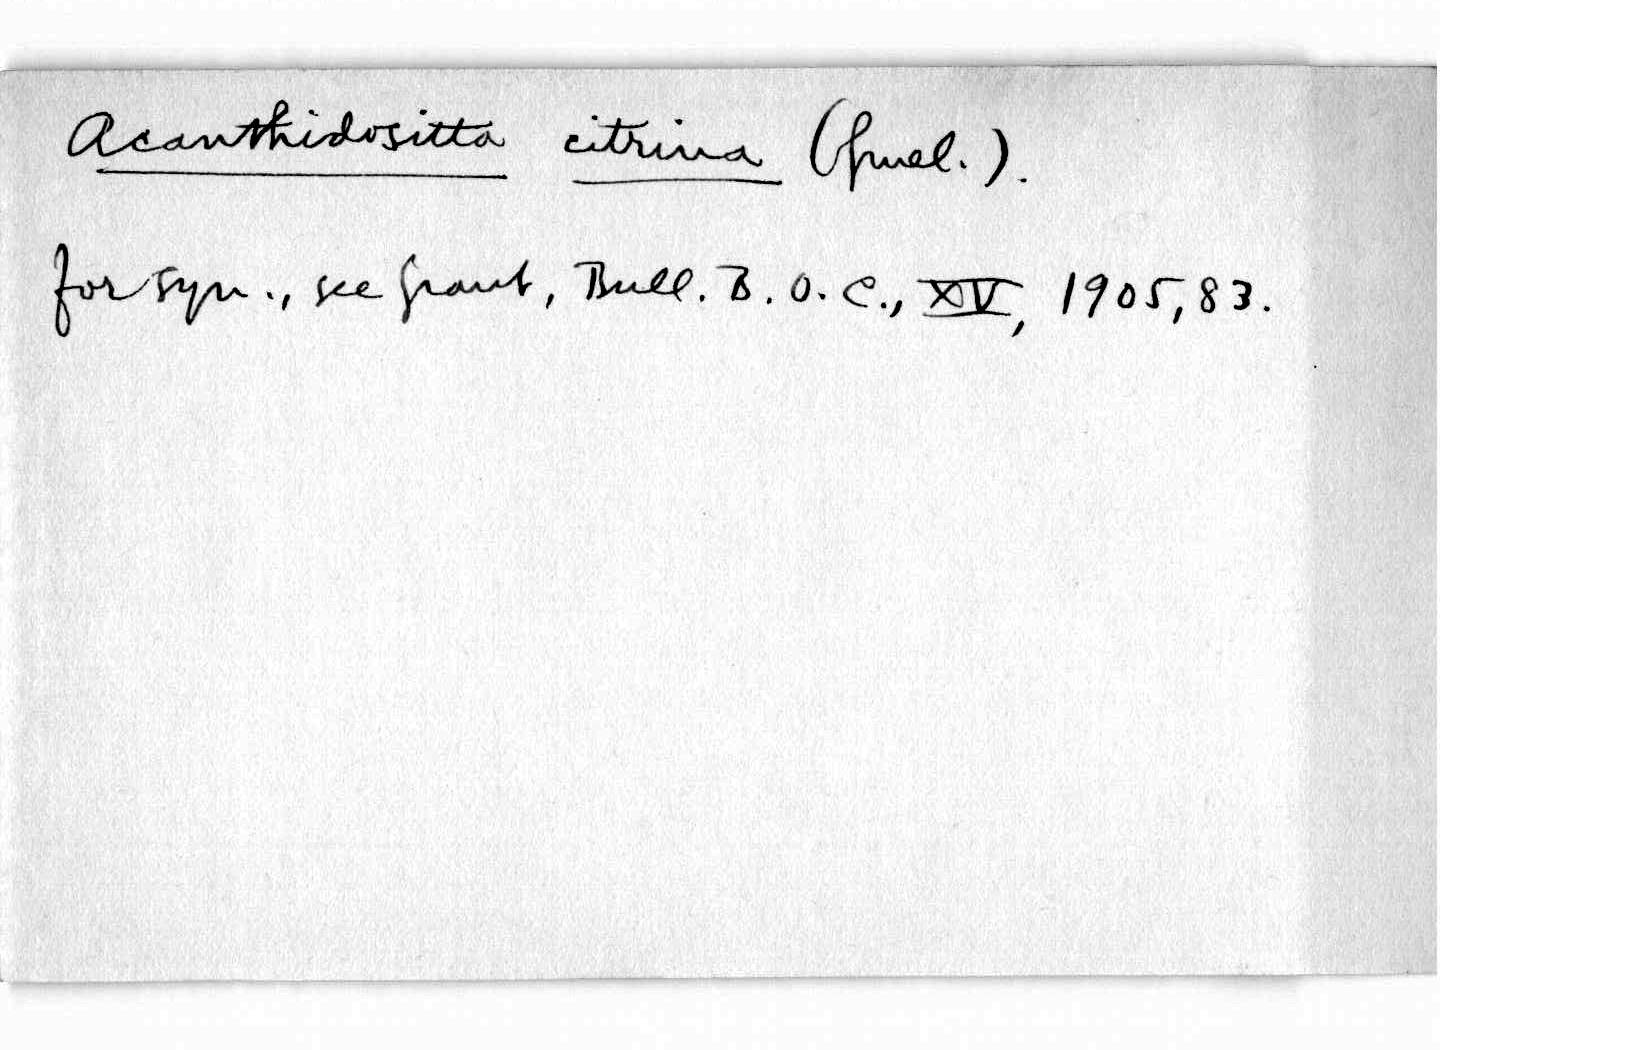 Acanthidositta citrina (Gmel.).
for syn., see Grant, Bull. B.O.C., XV, 1905, 83.